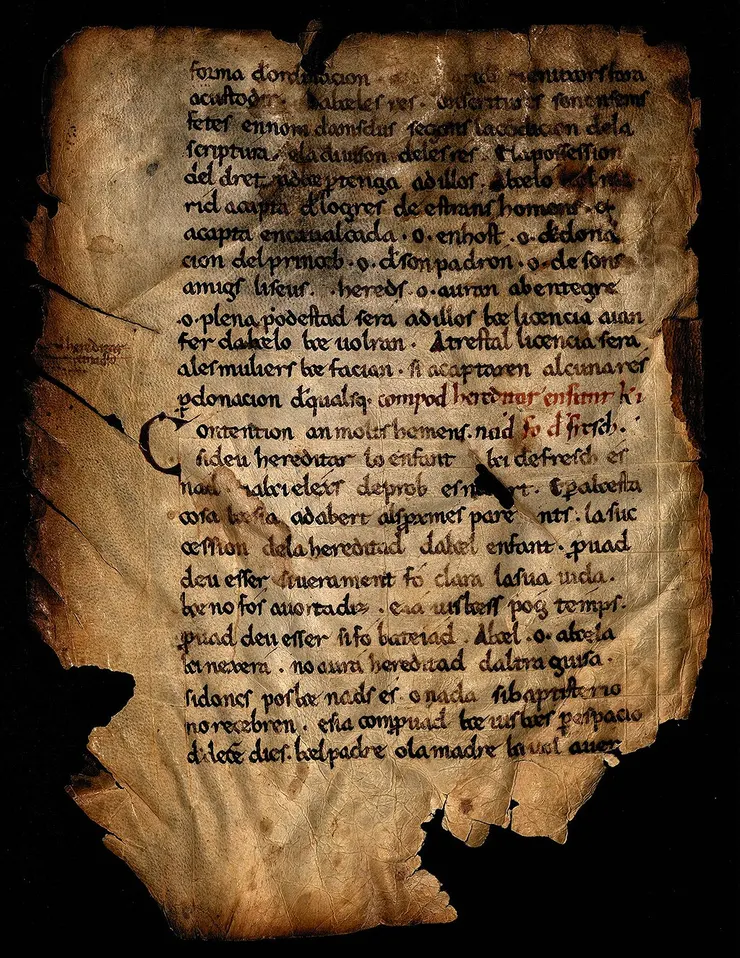 forma dordinacion · uenitorsfara
acustodir · Aakeles res · conscritures son ensems
fetes ennom damsdus segons lacodicion dela
scriptura · ela diuision deles res · Elapossession
del dret · ptenga ad illos · Aizelo
rid acapta dlogres de estrans homens · o
acapta encaualcada · o · enhost · o · dedona
cion del princeb · o · dson padron · o · de sons
amigs liseus · hereds · o · auran ab entegre
· o · plena podestad sera ad illos ke licencia aian
fer dakelo ke uolran · Atrestal licencia sera
ales muliers ke facian · si acaptaren alcunares
pdonacion dqualsq · compod hereditar enfant ki
Contention an molts homens · nad fo d fresch ·
sideu hereditar lo enfant ki defresch es
nad · deprob es mort · E pakesta
cosa kesia adabert als pmes parents · lasuc
cession dela hereditad dakel enfant · puad
deu esser siuerament fo clara lasua uida ·
ke no fos auortadis · esia uiskess pog temps ·
puad deu esser si fo bateiad · Akel · o · akela
ki nexera · no aura hereditad daltra guisa ·
sidoncs poske nads es o nada sibaptisterio
no recebren · esia compuad ke uiskes pespacio
didete dies · kel padre o la madre la uol auer